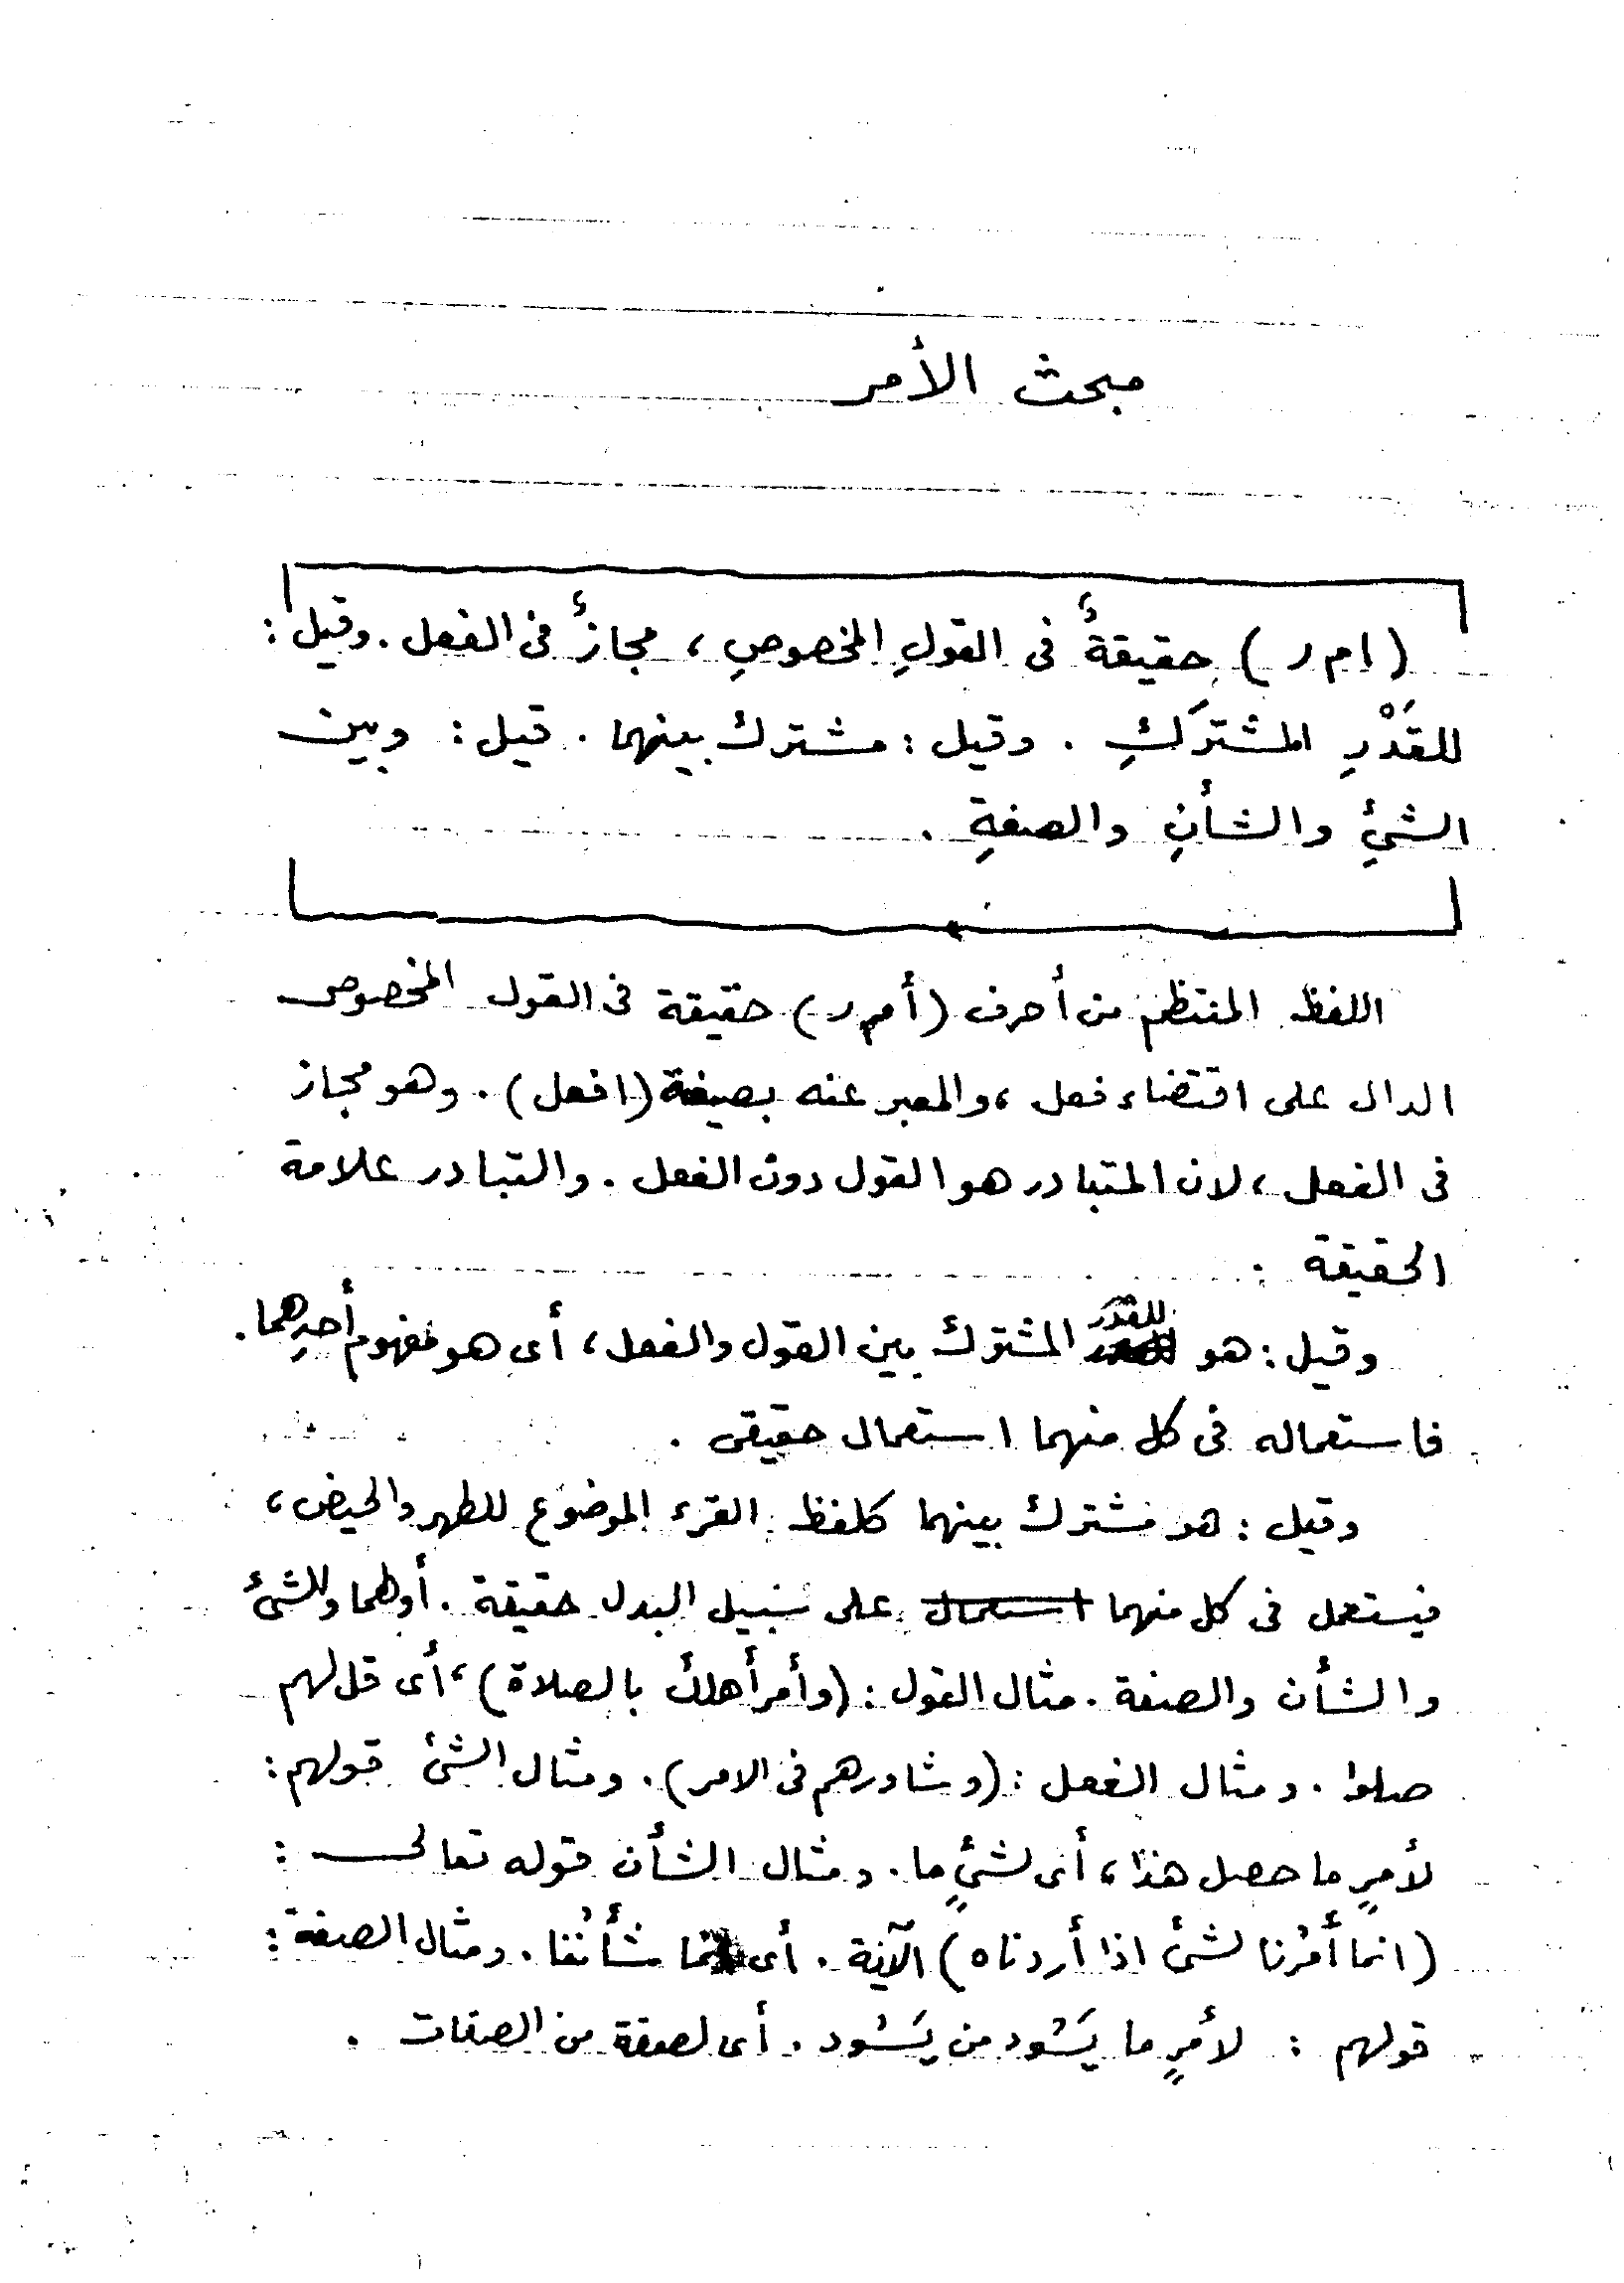 مبحث الأمر
(ا م ر) حقيقةٌ فى القولِ المخصوصِ ، مجازٌ فى الفعل . وقيل :
للقَدْرِ المشترَكِ . وقيل : مشترك بينهما . قيل : وبين
الشئِ والشأنِ والصفةِ .
اللفظ المنتظم من أحرف (أ م ر) حقيقة فى القول المخصوص
الدال على اقتضاء فعل ، والمعبر عنه بصيغة (افعل) . وهو مجاز
فى الفعل ، لان المتبادر هو القول دون الفعل . والتبادر علامة
الحقيقة .
وقيل : هو للقَدْر المشترك بين القول والفعل ، أى هو مفهوم أحدِهما .
فاستعماله فى كل منهما استعمال حقيقى .
وقيل : هو مشترك بينهما كلفظ القرء الموضوع للطهر والحيض ،
فيستعمل فى كل منهما استعمال على سبيل البدل حقيقة . أو لهما وللشئ
والشأن والصفة . مثال القول : (وأمر أهلك بالصلاة) ، أى قل لهم
صلوا . ومثال الفعل : (وشاورهم فى الامر) . ومثال الشئ قولهم :
لأمرٍ ما حصل هذا ، أى لشئٍ ما . ومثال الشأن قوله تعالى :
(انما أمْرُنا لشئ اذا أردناه) الآية . أى انما شأنُنا . ومثال الصفة :
قولهم : لأمرٍ ما يَسُود من يَسُود . أى لصفة من الصفات .